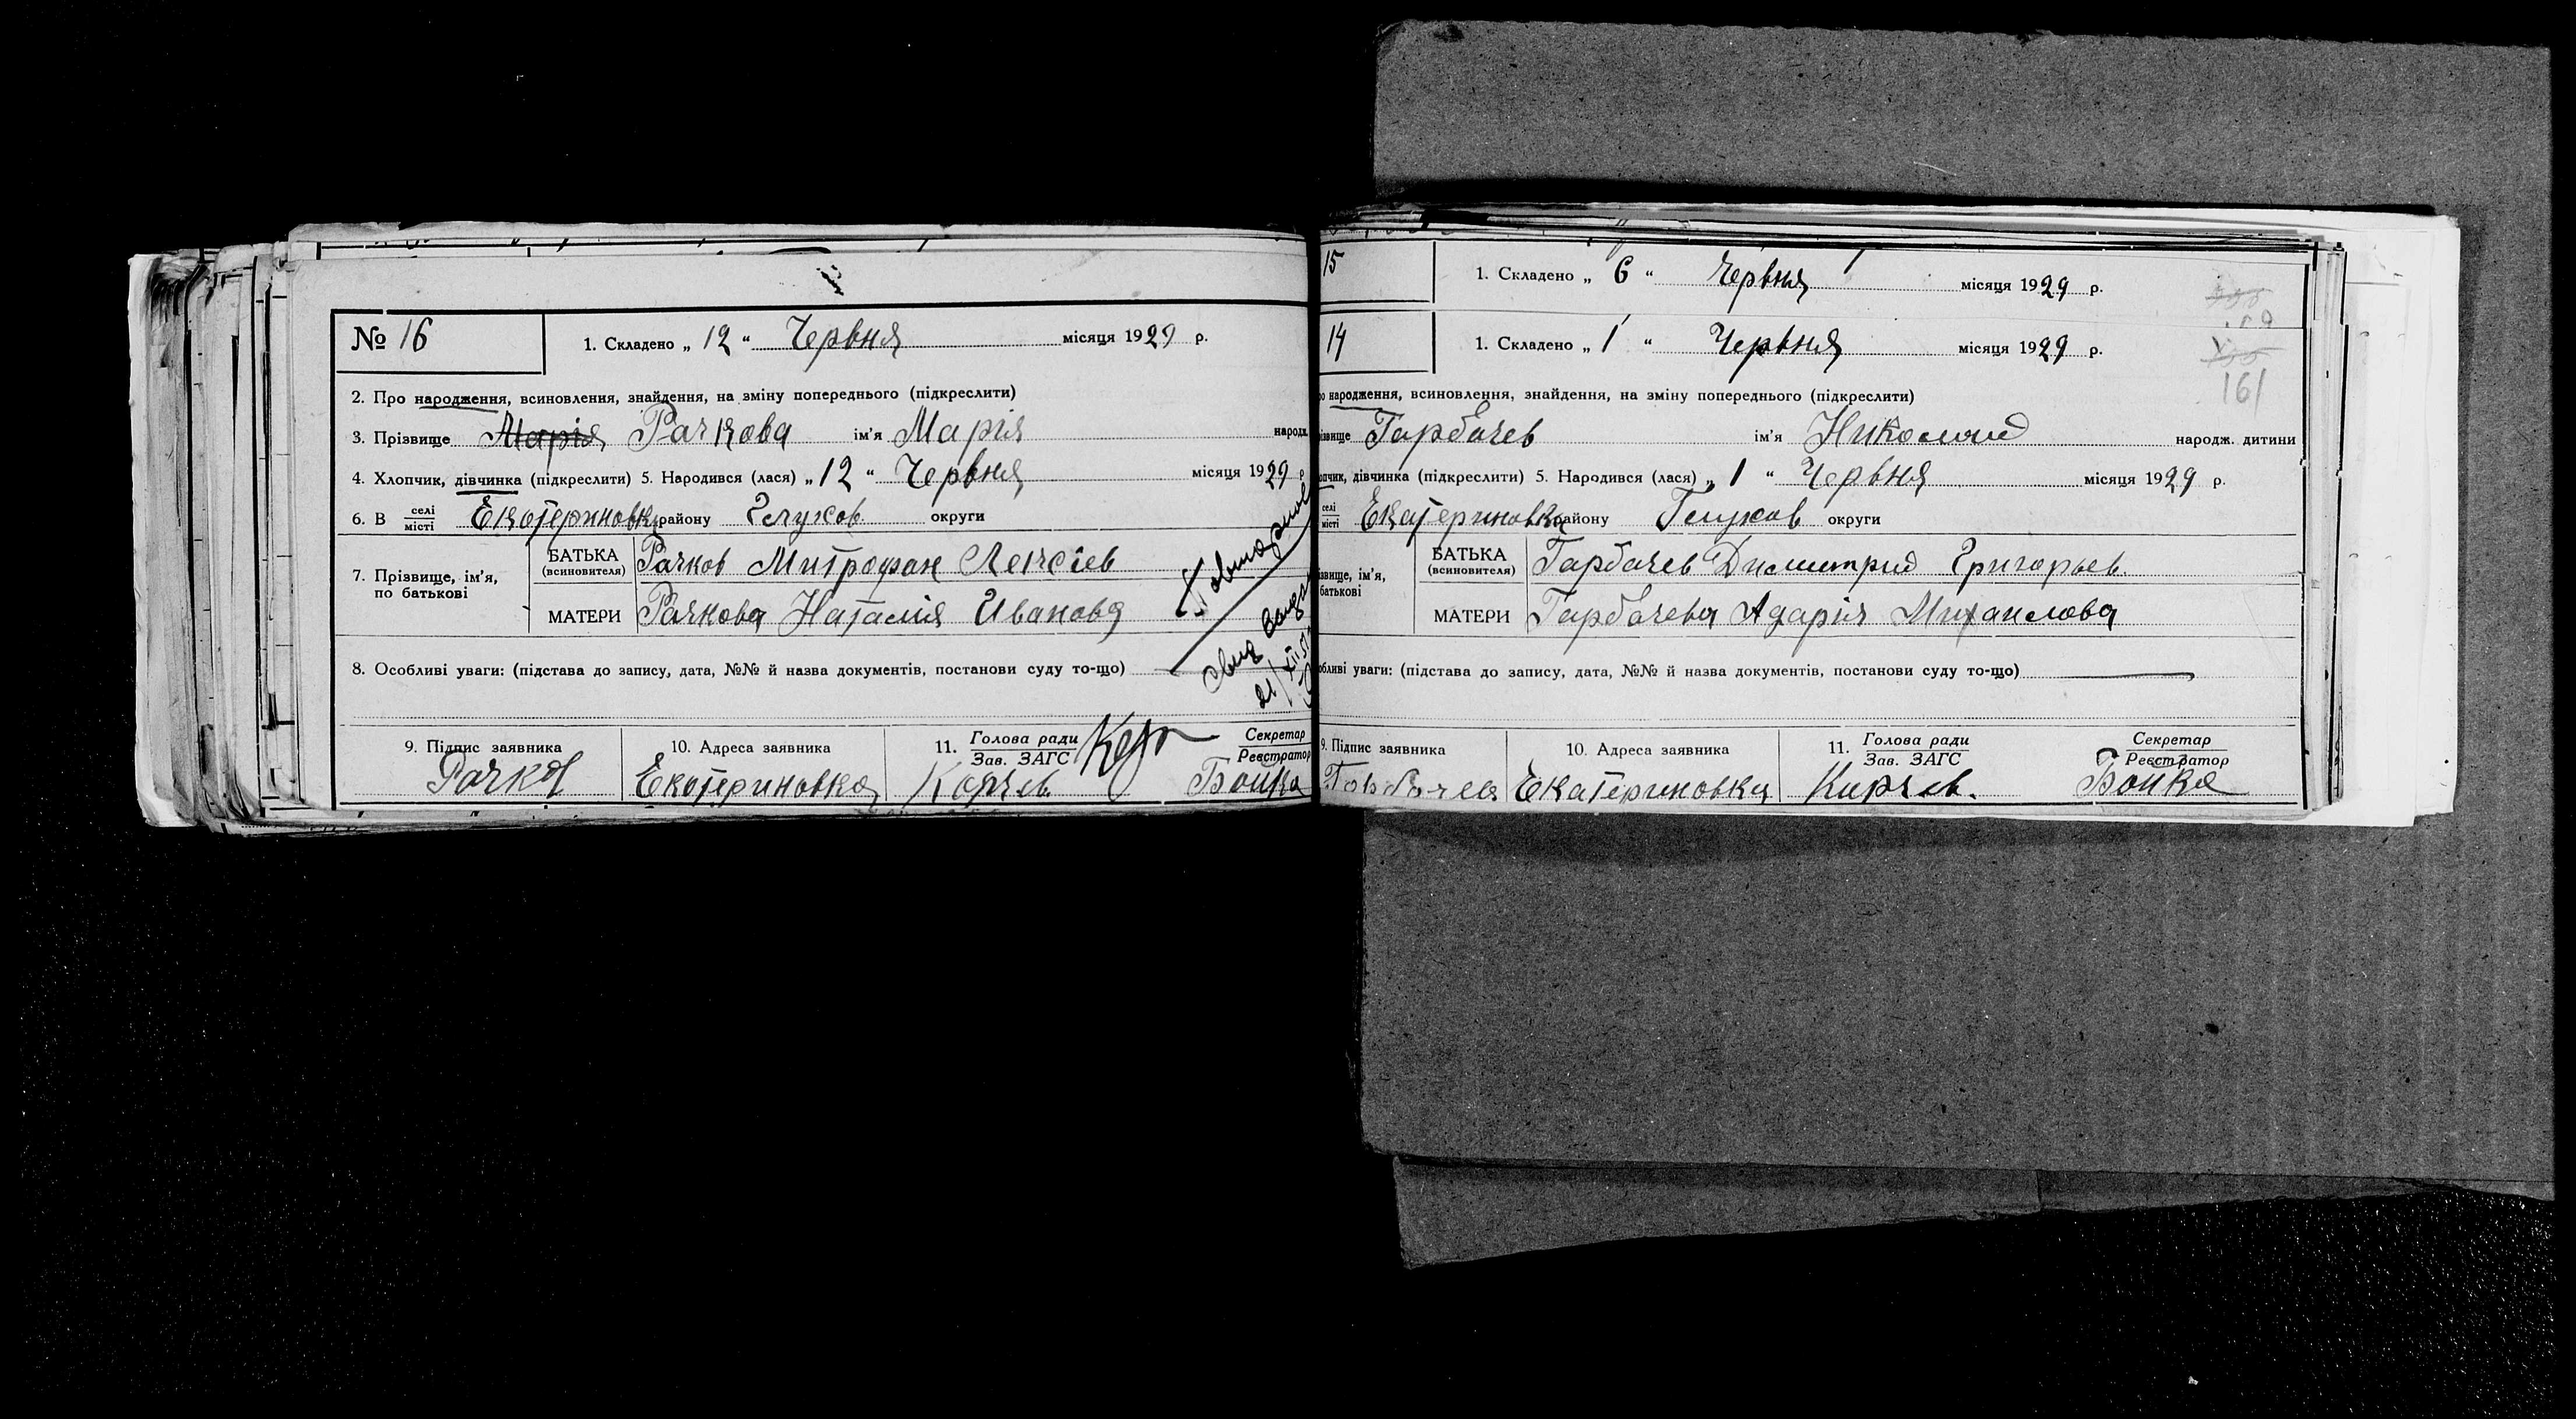 № 16
1. Складено „ 12 “ Червня місяця 1929 р.
2. Про народження, всиновлення, знайдення, на зміну попереднього (підкреслити)
3. Прізвище Марія Рачкова ім'я Марія народж.
4. Хлопчик, дівчинка (підкреслити) 5. Народився (лася) „ 12 “ Червня місяця 1929 р
6. В селі місті Екатериновка району Глухов округи
7. Прізвище, ім'я, по батькові
БАТЬКА (всиновителя) Рачков Митрофан
МАТЕРИ Рачкова Наталия Иванова
8. Особливі уваги: (підстава до запису, дата, №№ й назва документів, постанови суду то-що)
21/XII
9. Підпис заявника
Рачков
10. Адреса заявника
Екатериновка
11. Голова ради
Зав. ЗАГС
Секретар
Реєстратор
Бойко
15
1. Складено „ 6 “ Червня місяця 1929 р.
14
1. Складено „ 1 “ Червня місяця 1929 р.
161
народження, всиновлення, знайдення, на зміну попереднього (підкреслити)
Гарбачев ім'я Николай народж. дитини
дівчинка (підкреслити) 5. Народився (лася) „ 1 “ Червня місяця 1929 р.
селі місті Екатериновка району Глухов округи
ім'я, батькові
БАТЬКА (всиновителя) Гарбачев Димитрий Григорьев
МАТЕРИ Гарбачева Михаилова
уваги: (підстава до запису, дата, №№ й назва документів, постанови суду то-що)
9. Підпис заявника
10. Адреса заявника
Екатериновка
11. Голова ради
Зав. ЗАГС
Секретар
Реєстратор
Бойко